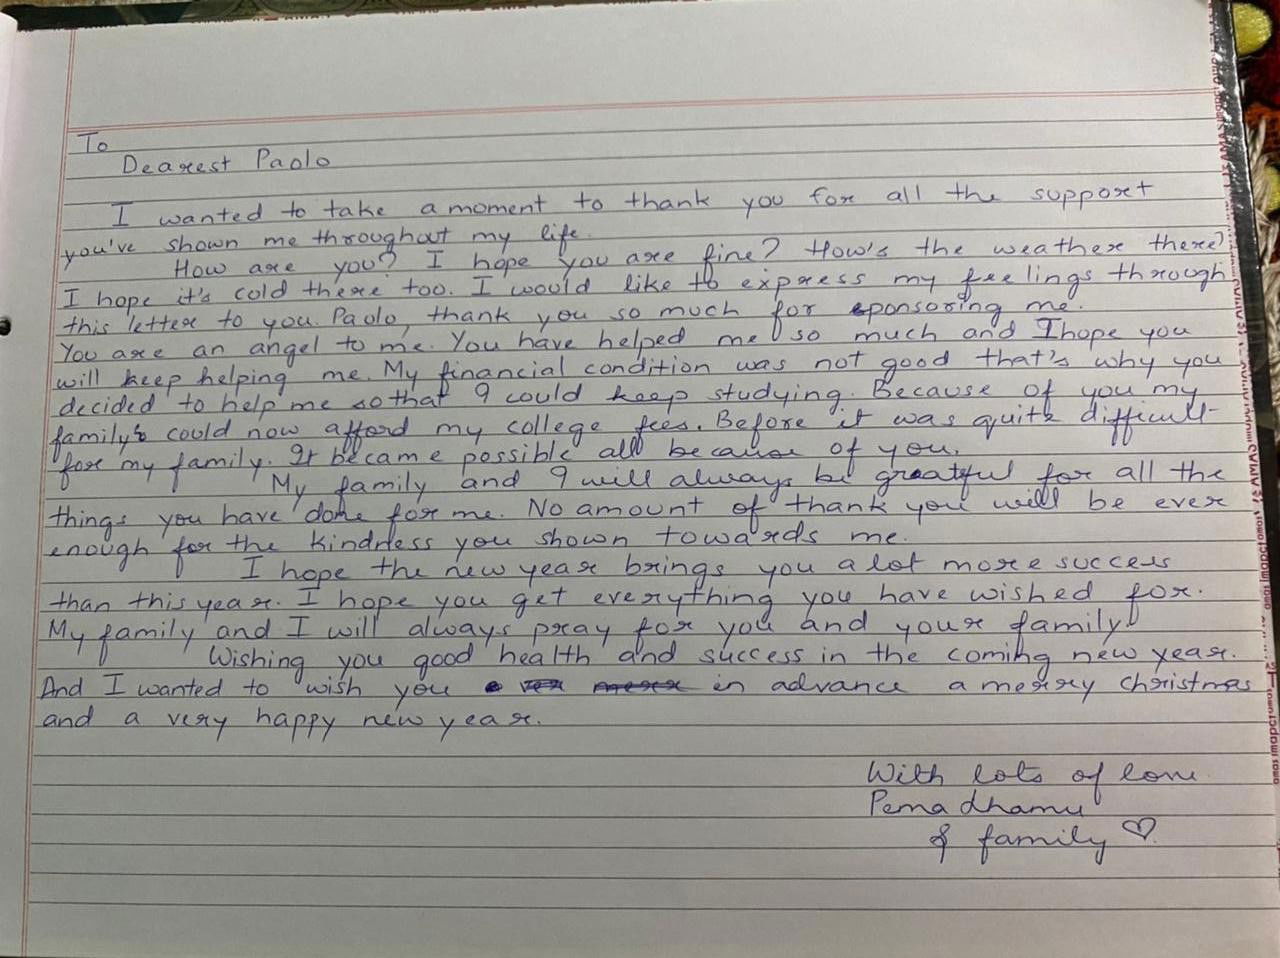 To
Dearest Paolo
I wanted to take a moment to thank you for all the support
you've shown me throughout my life.
How are you? I hope you are fine? How's the weather there?
I hope it's cold there too. I would like to express my feelings through
this letter to you. Paolo, thank you so much for sponsoring me.
You are an angel to me. You have helped me so much and I hope you
will keep helping me. My financial condition was not good that's why you
decided to help me so that I could keep studying. Because of you my
family's could now afford my college fees. Before it was quite difficult
for my family. It became possible all because of you.
My family and I will always be greatful for all the
things you have done for me. No amount of thank you will be ever
enough for the kindness you shown towards me.
I hope the new year brings you a lot more success
than this year. I hope you get everything you have wished for.
My family and I will always pray for you and your family.
Wishing you good health and success in the coming new year.
And I wanted to wish you in advance a merry christmas
and a very happy new year.
With lots of love
Pema dhamu
& family ♡